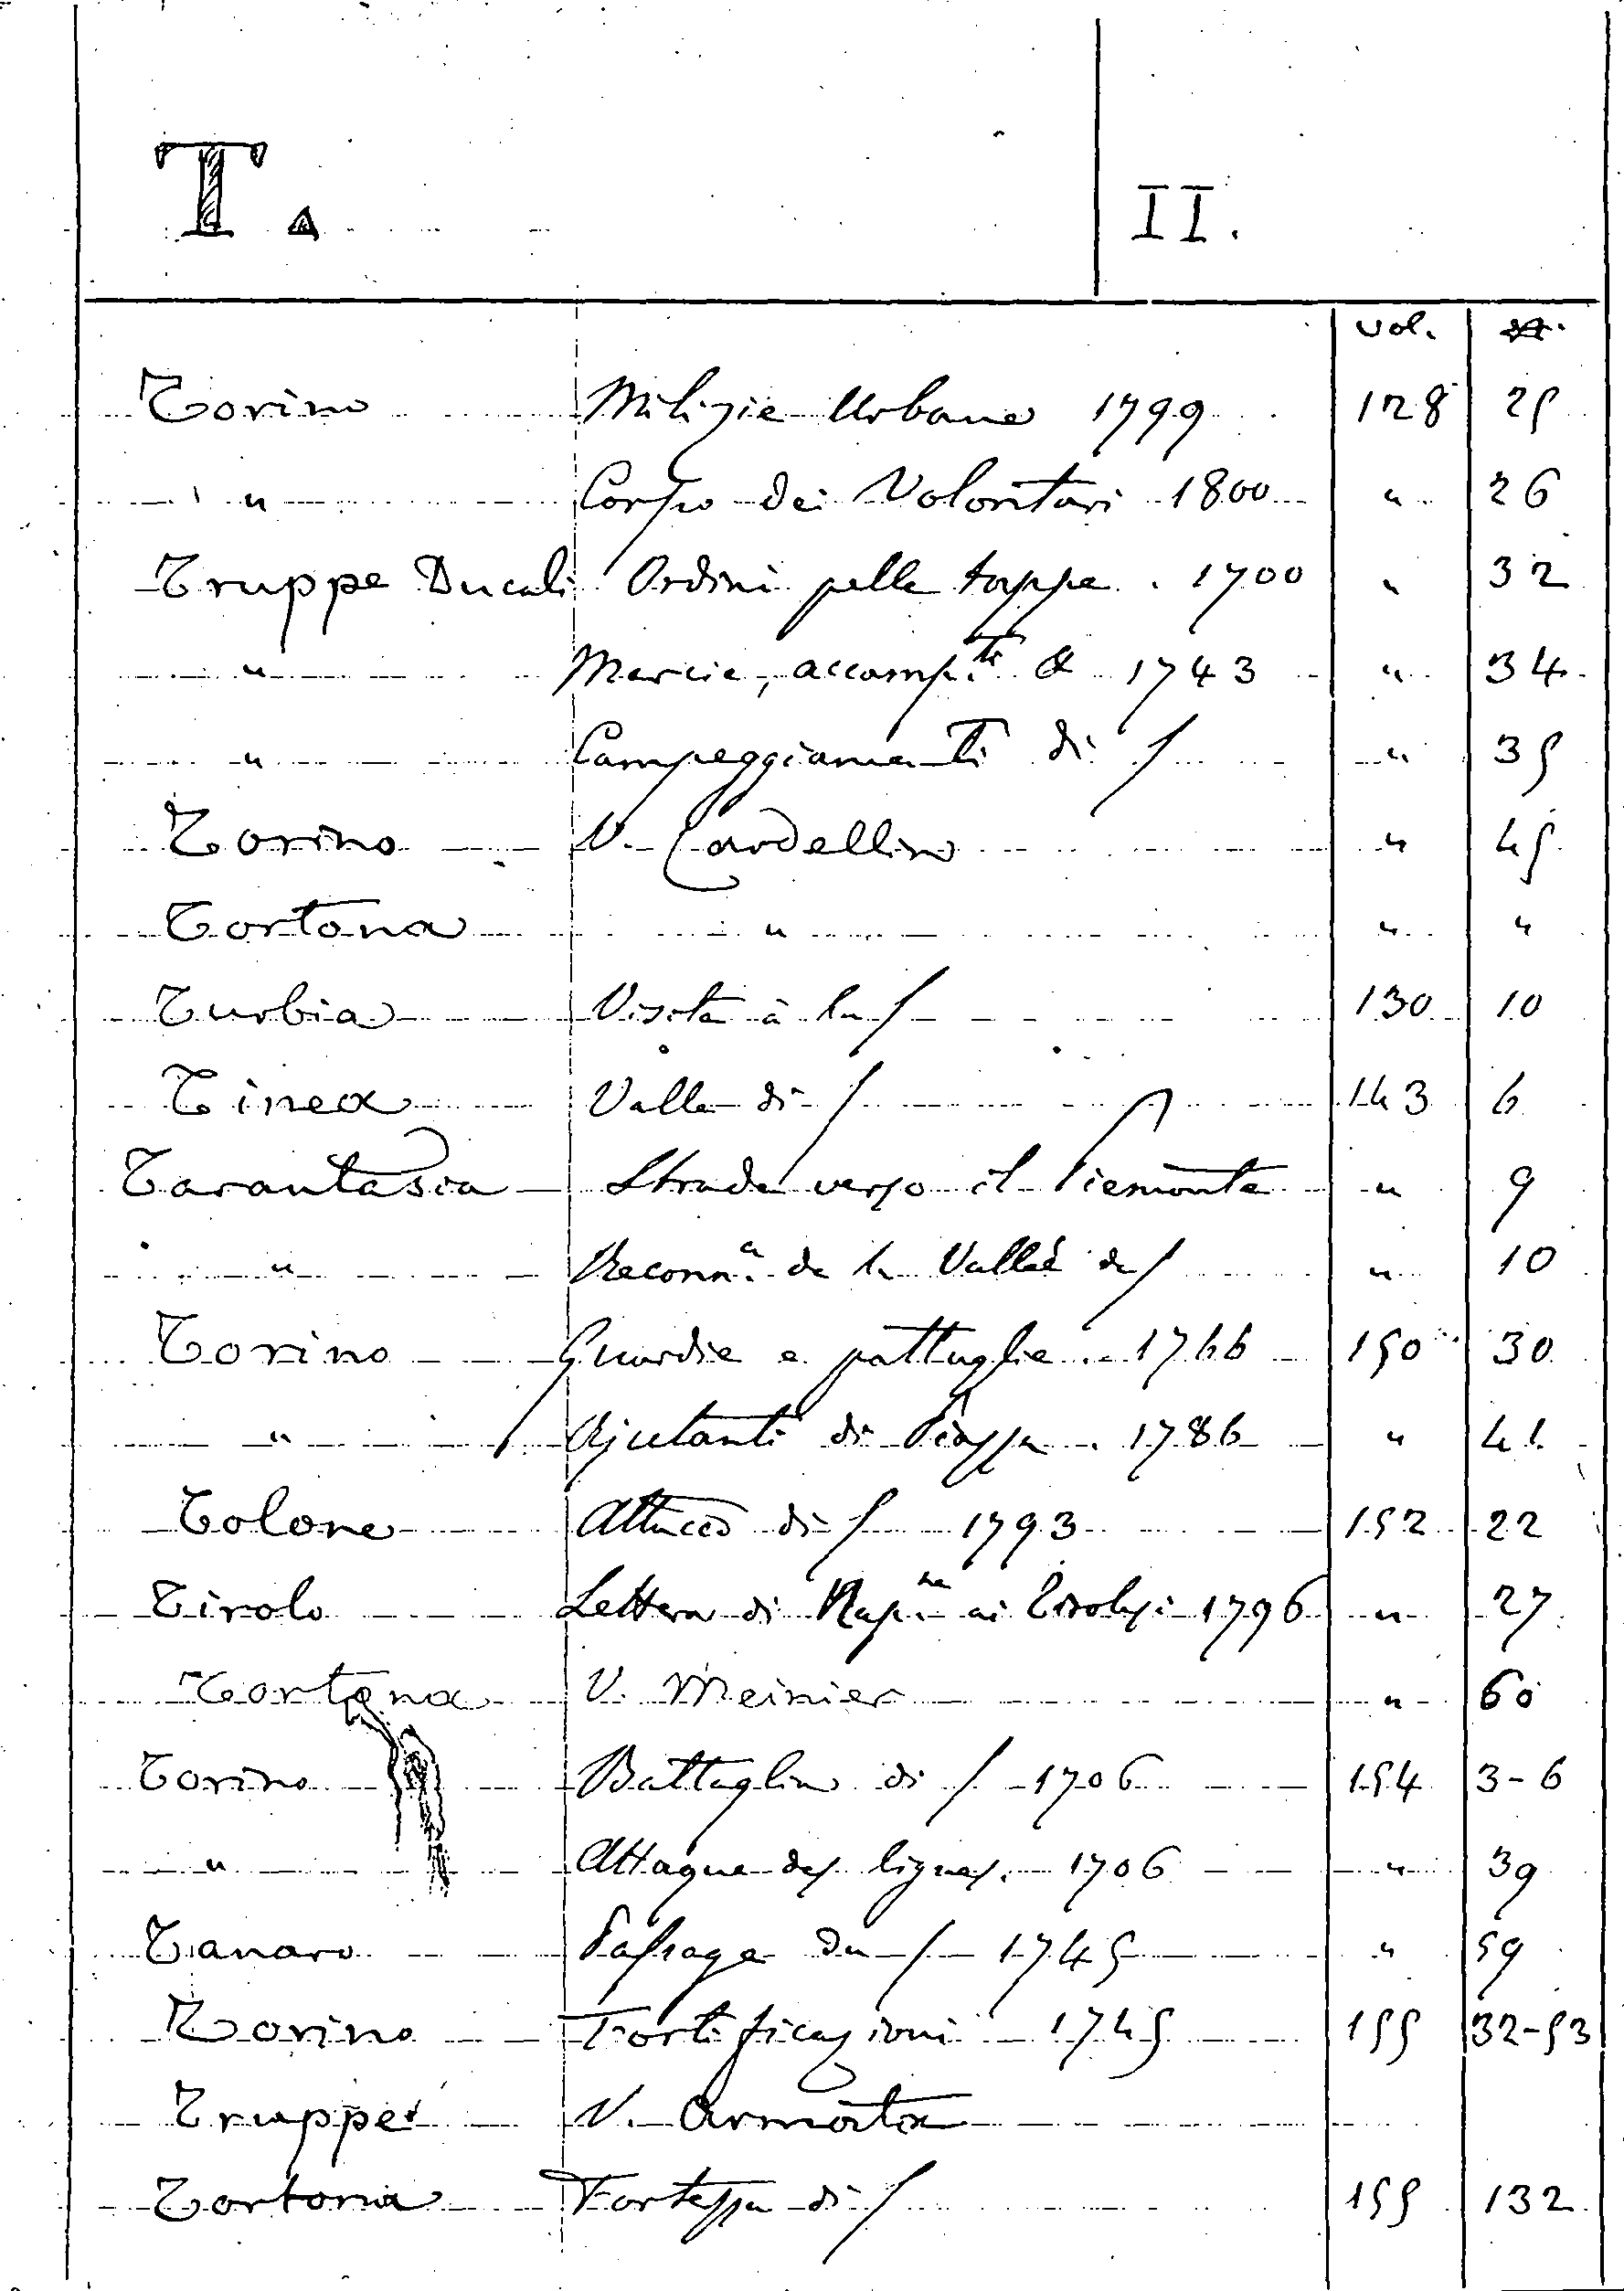 T. II.
vol. n.
Torino Milizie Urbane 1799 128 25
" Corpo dei Volontari 1800 " 26
Truppe Ducali Ordini pelle tappe. 1700 " 32
" Marcie, accamp.ti & 1743 " 34
" Campeggiamenti di / " 35
Torino V. Cardellino " 45
Tortona " " "
Turbia Visita à la / 130 10
Tinea Valle di / 143 6
Tarantasia Strade verso il Piemonte " 9
" Reconn.ce de la Vallée de / " 10
Torino Guardie e pattuglie. 1766 150 30
" Ajutanti di Piazza. 1786 " 41
Tolone Attacco di / 1793 152 22
Tirolo Lettera di Nap.ne ai Tirolesi 1796 " 27
Tortona V. Meinier " 60
Torino Battaglia di / 1706 154 3-6
" Attaque des lignes. 1706 " 39
Tanaro Passage du / 1745 " 59
Torino Fortificazioni 1745 155 32-53
Truppe V. Armata
Tortona Fortezza di / 155 132